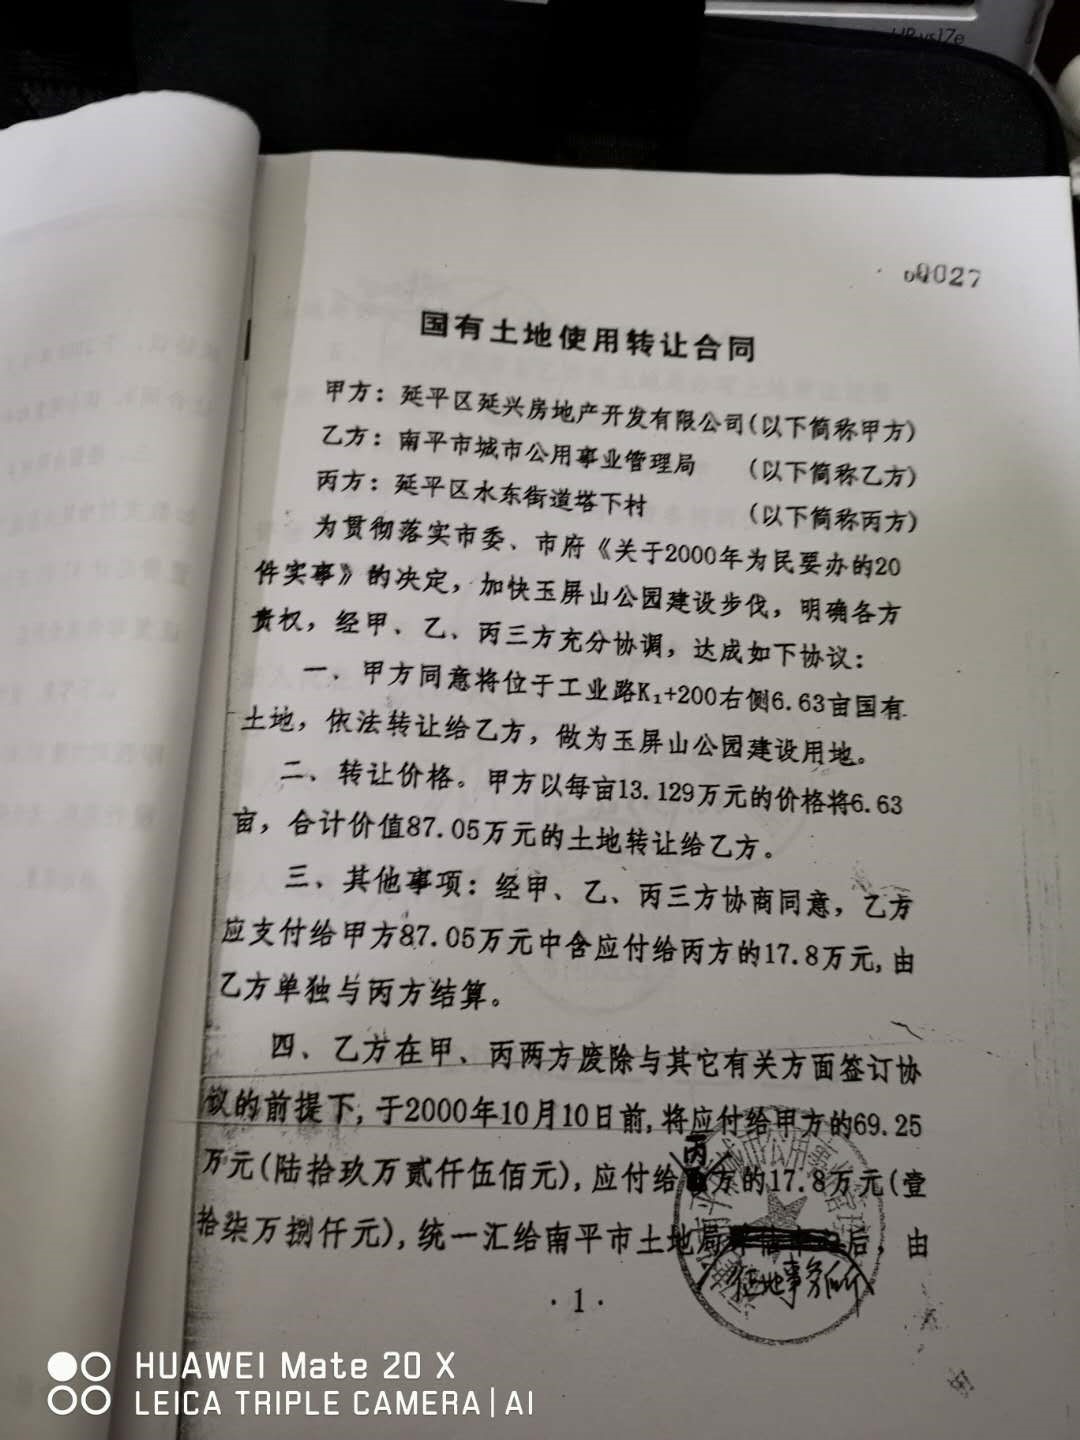 00027
国有土地使用转让合同
甲方：延平区延兴房地产开发有限公司(以下简称甲方)
乙方：南平市城市公用事业管理局 (以下简称乙方)
丙方：延平区水东街道塔下村 (以下简称丙方)
为贯彻落实市委、市府《关于2000年为民要办的20
件实事》的决定，加快玉屏山公园建设步伐，明确各方
责权，经甲、乙、丙三方充分协调，达成如下协议：
一、甲方同意将位于工业路K₁+200右侧6.63亩国有
土地，依法转让给乙方，做为玉屏山公园建设用地。
二、转让价格。甲方以每亩13.129万元的价格将6.63
亩，合计价值87.05万元的土地转让给乙方。
三、其他事项：经甲、乙、丙三方协商同意，乙方
应支付给甲方87.05万元中含应付给丙方的17.8万元,由
乙方单独与丙方结算。
四、乙方在甲、丙两方废除与其它有关方面签订协
议的前提下,于2000年10月10日前,将应付给甲方的69.25
万元(陆拾玖万贰仟伍佰元),应付给丙方的17.8万元(壹
拾柒万捌仟元),统一汇给南平市土地局后，由
征地事务所
·1·
HUAWEI Mate 20 X
LEICA TRIPLE CAMERA|AI